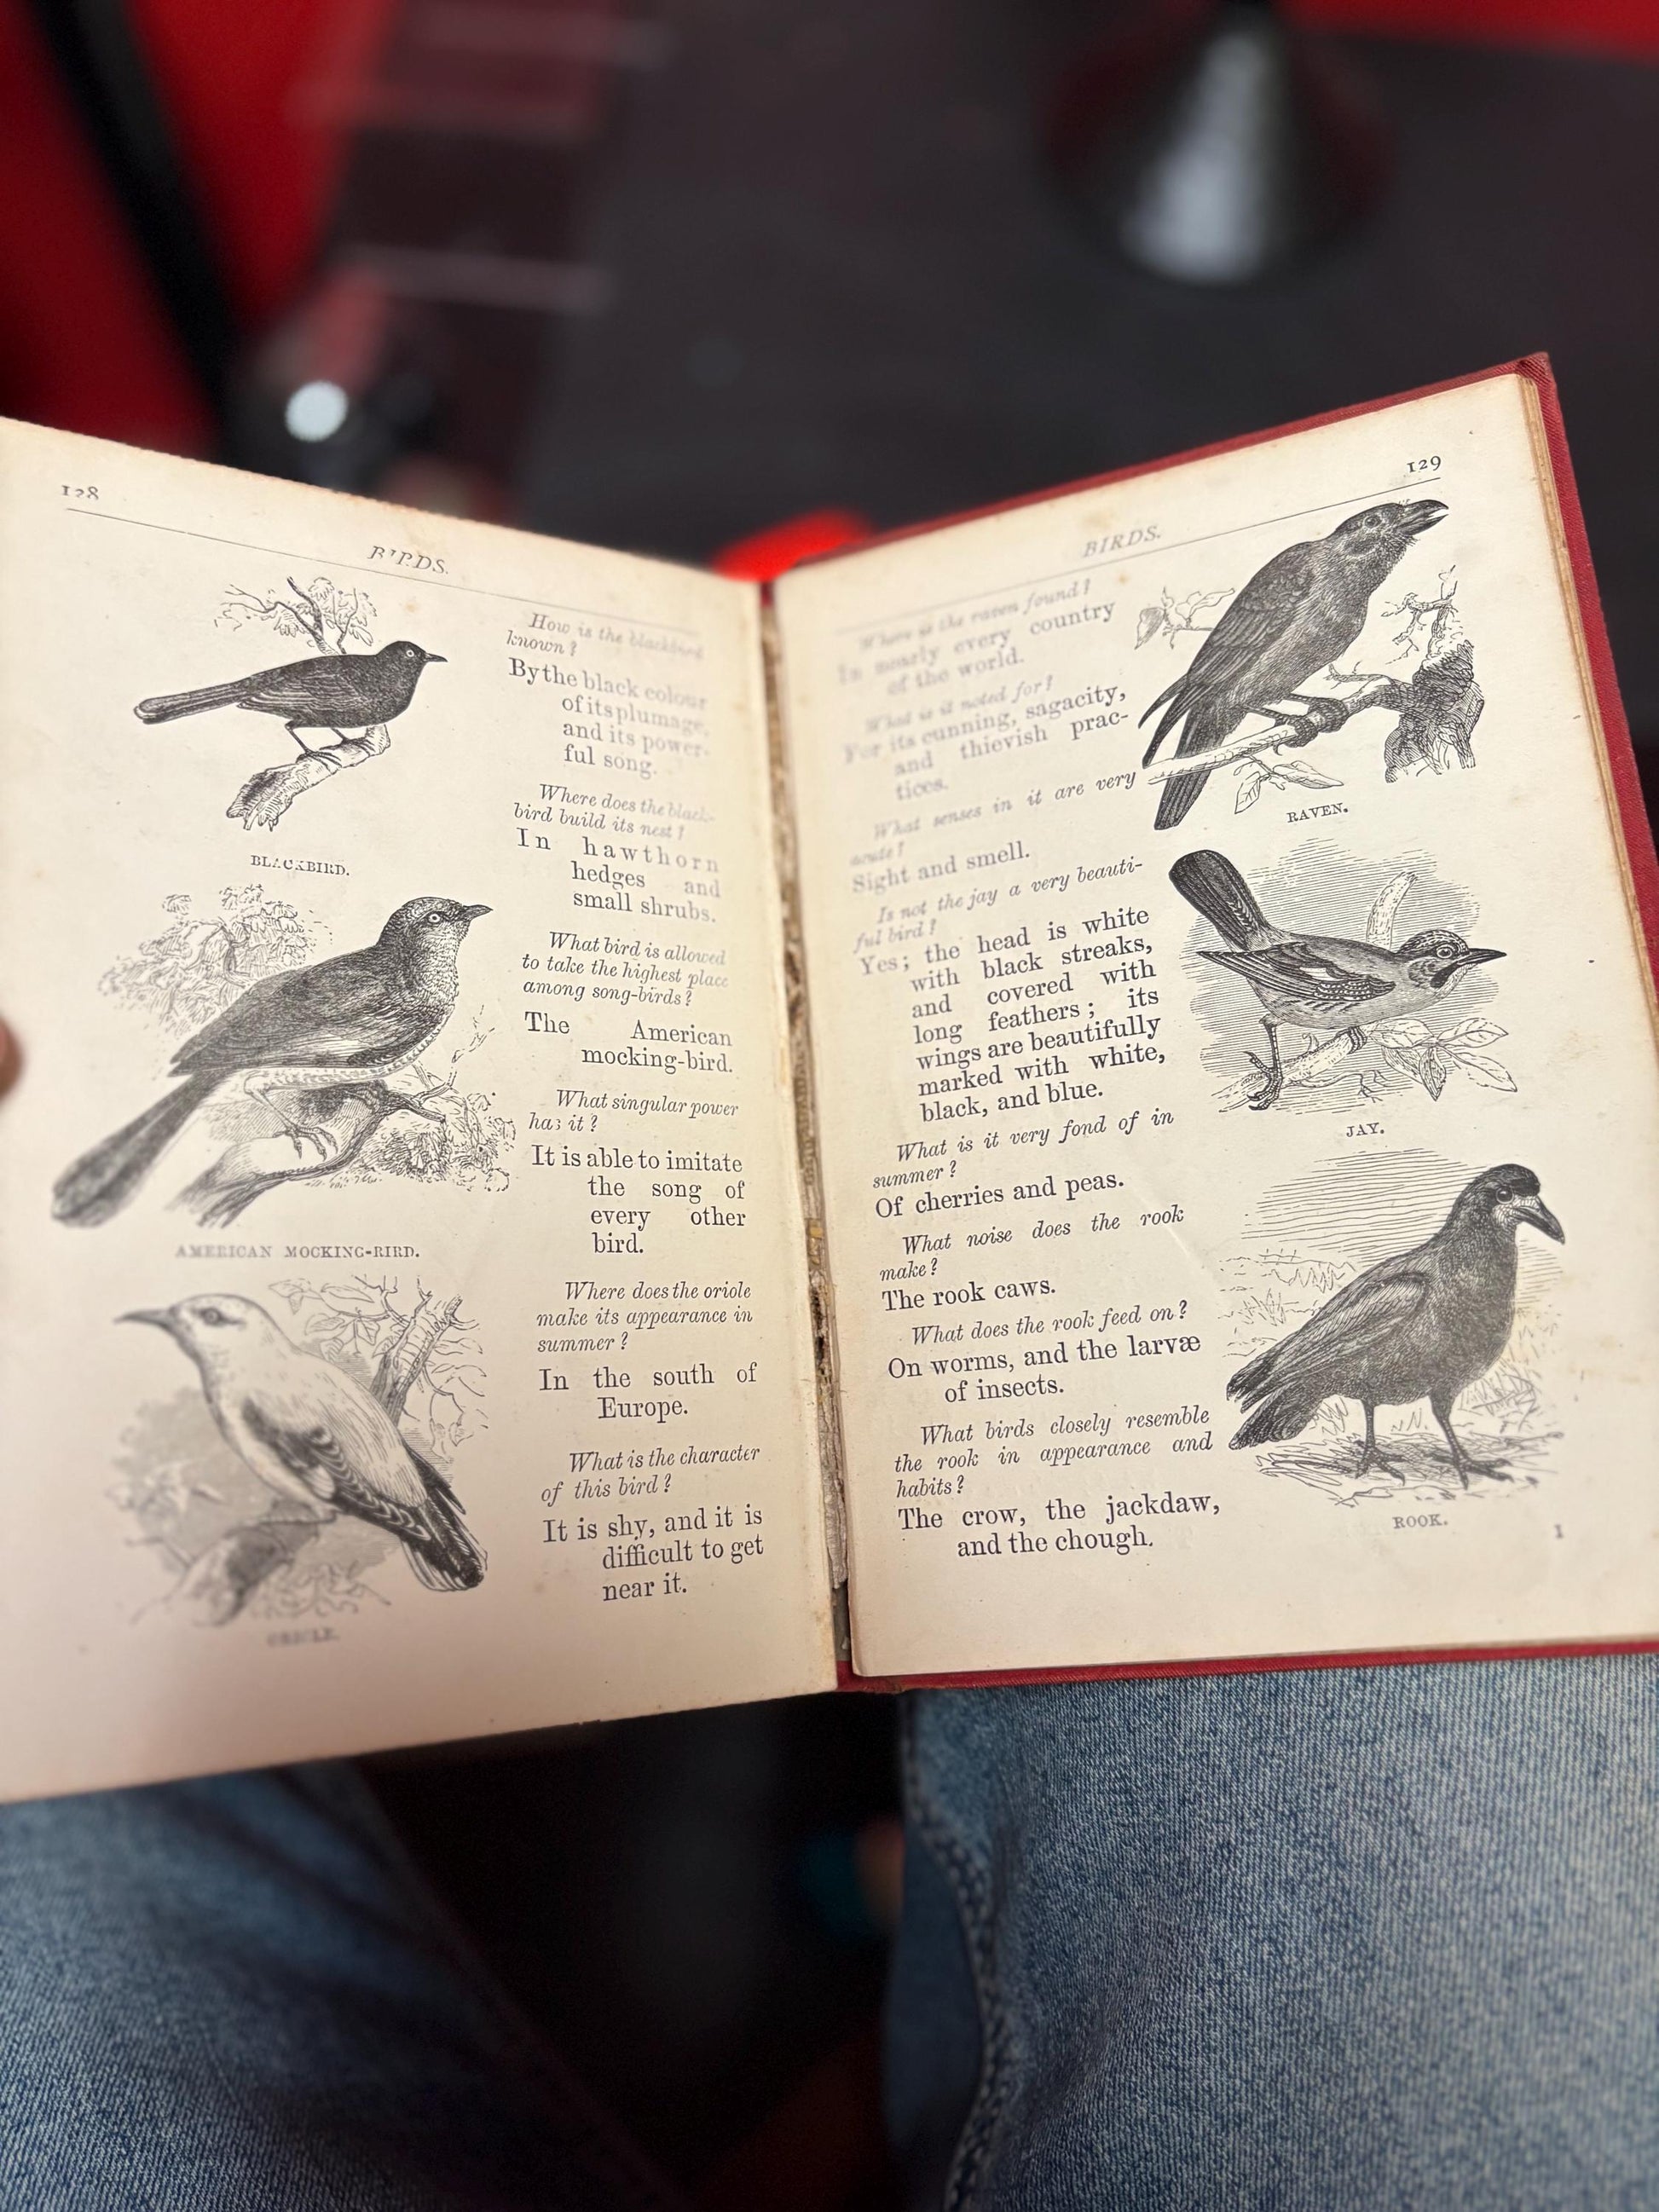 128
BIRDS.
BLACKBIRD.
AMERICAN MOCKING-BIRD.
ORIOLE.
How is the blackbird
known?
By the black colour
of its plumage,
and its power-
ful song.
Where does the black-
bird build its nest?
In hawthorn
hedges and
small shrubs.
What bird is allowed
to take the highest place
among song-birds?
The American
mocking-bird.
What singular power
has it?
It is able to imitate
the song of
every other
bird.
Where does the oriole
make its appearance in
summer?
In the south of
Europe.
What is the character
of this bird?
It is shy, and it is
difficult to get
near it.
129
BIRDS.
Where is the raven found?
In nearly every country
of the world.
What is it noted for?
For its cunning, sagacity,
and thievish prac-
tices.
What senses in it are very
acute?
Sight and smell.
Is not the jay a very beauti-
ful bird?
Yes; the head is white
with black streaks,
and covered with
long feathers; its
wings are beautifully
marked with white,
black, and blue.
What is it very fond of in
summer?
Of cherries and peas.
What noise does the rook
make?
The rook caws.
What does the rook feed on?
On worms, and the larvæ
of insects.
What birds closely resemble
the rook in appearance and
habits?
The crow, the jackdaw,
and the chough.
RAVEN.
JAY.
ROOK.
I